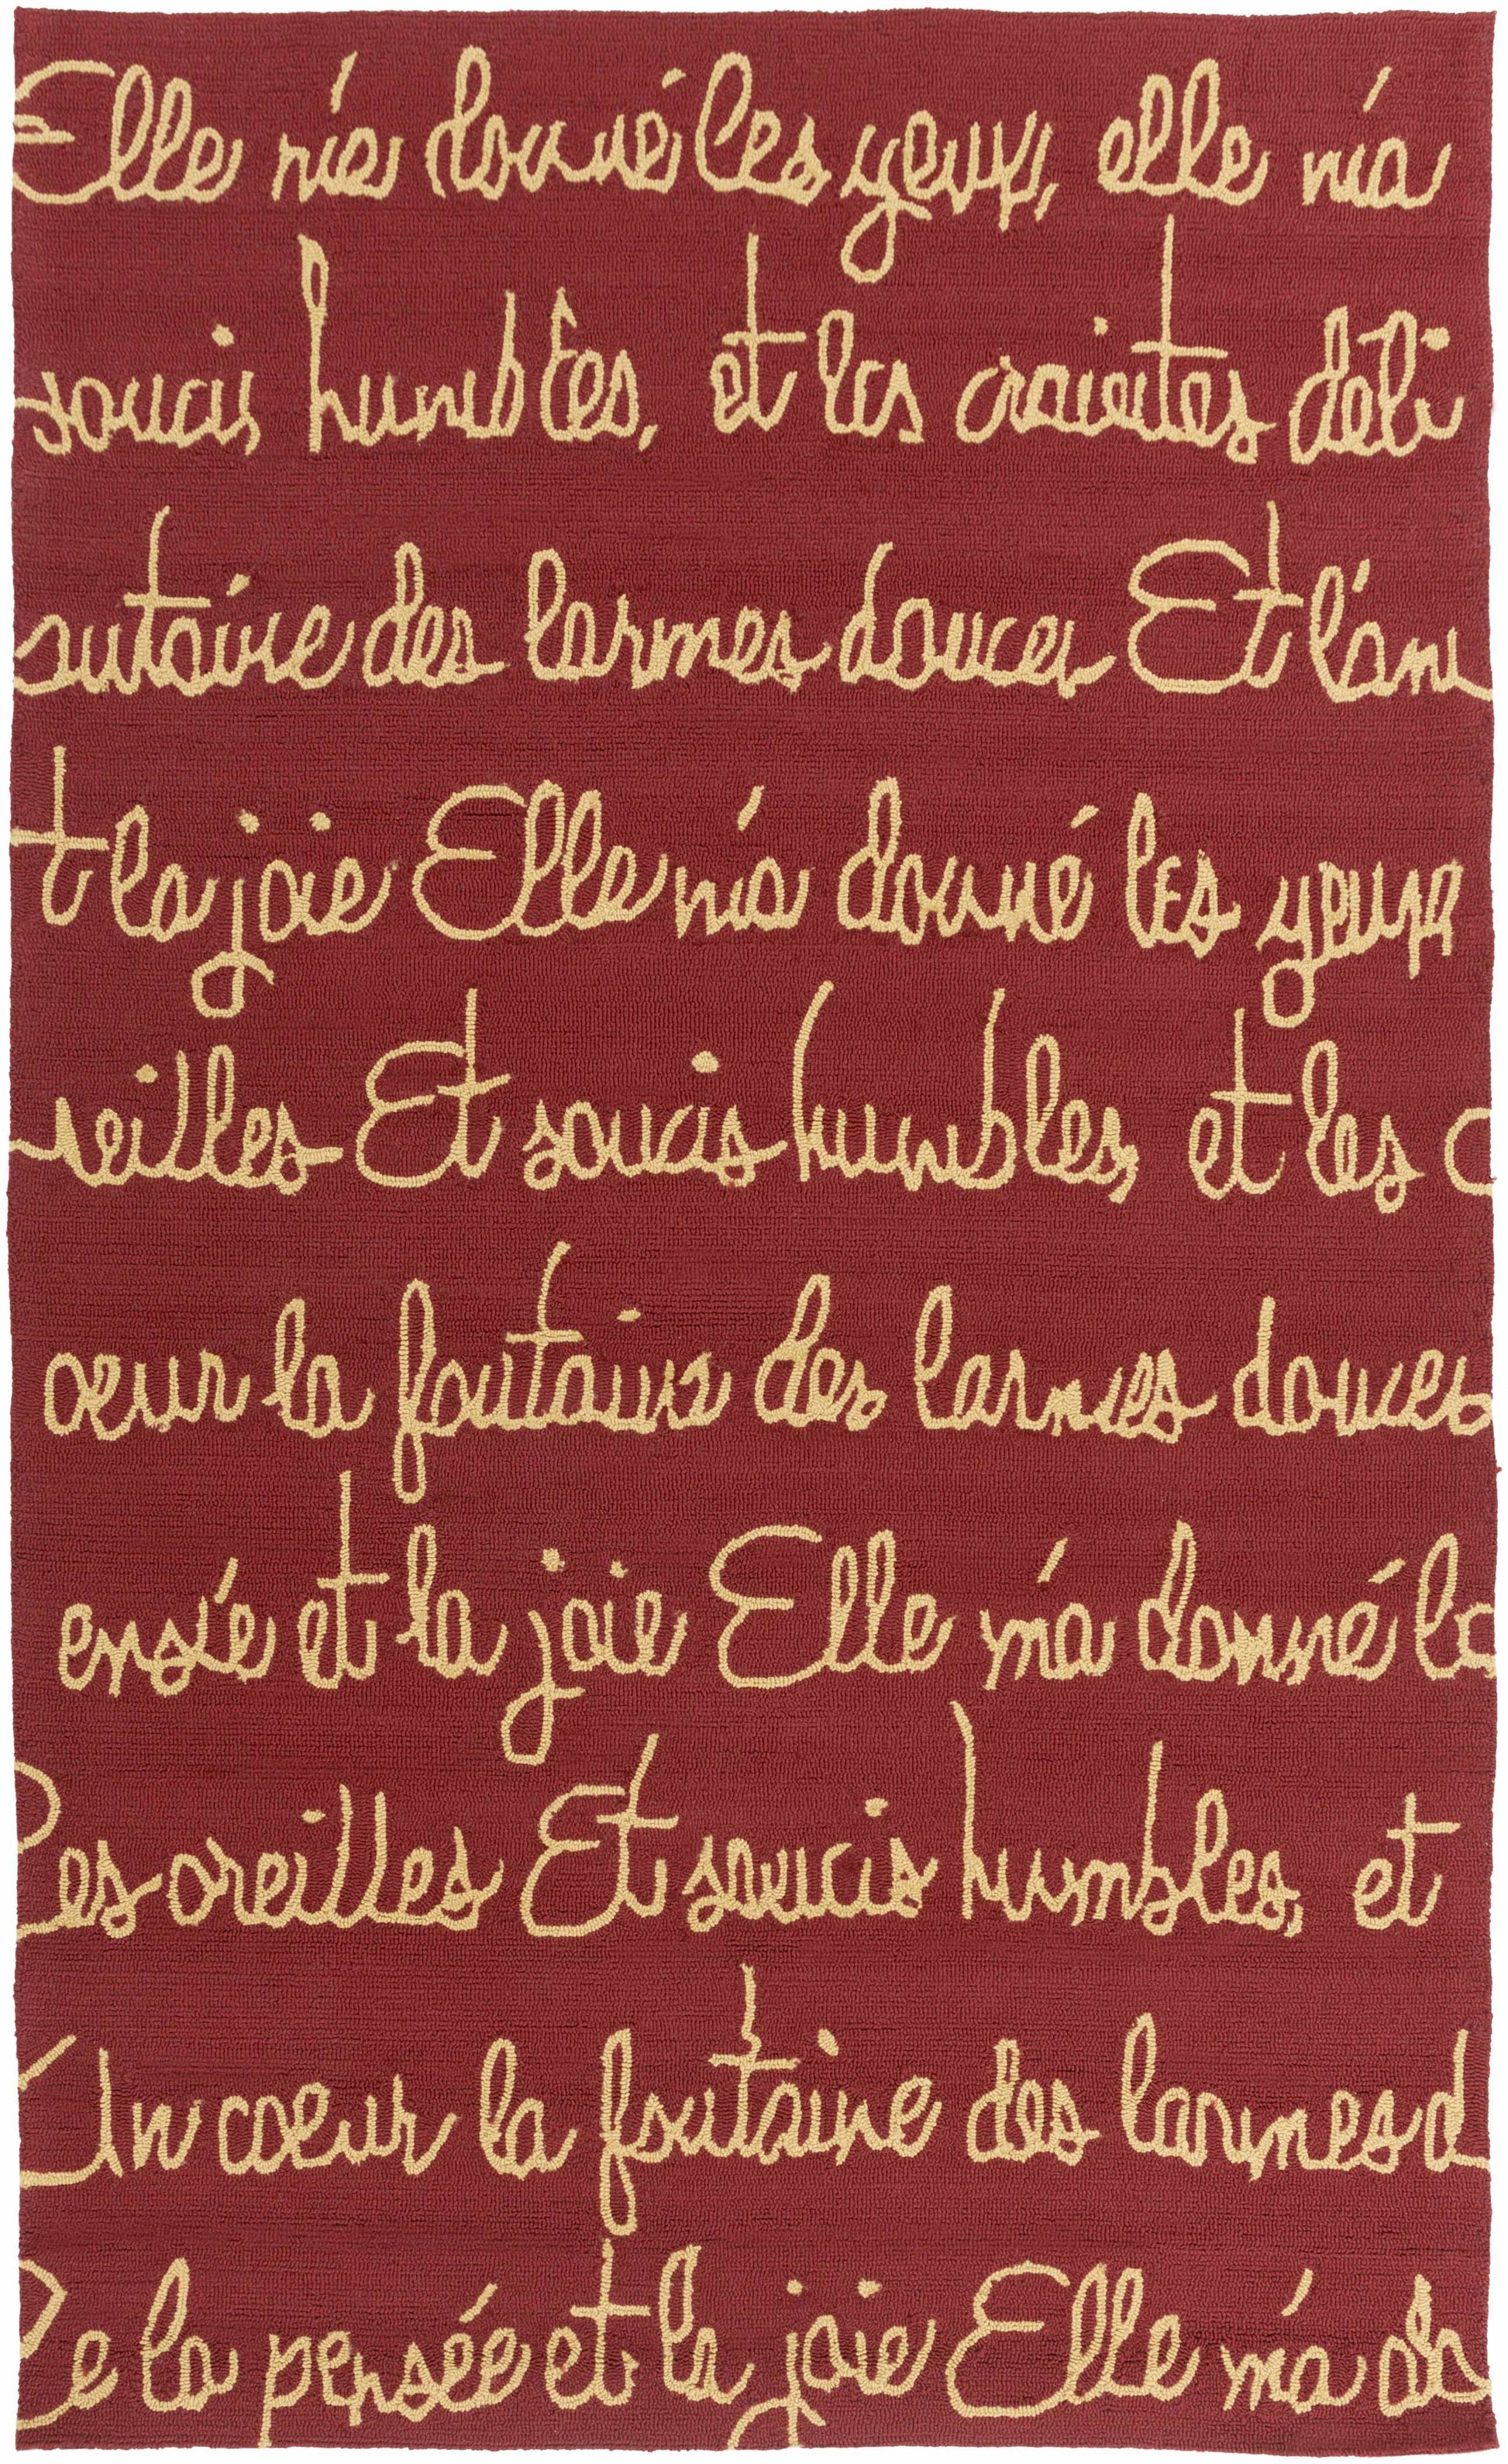 Elle m'a donné les yeux, elle m'a
soucis humbles, et les craintes déli
ontaine des larmes douces Et l'am
t la joie Elle m'a donné les yeux
reilles Et soucis humbles, et les c
œur la fontaine des larmes douces
ensée et la joie Elle m'a donné le
Les oreilles Et soucis humbles, et
Un cœur la fontaine des larmes d
De la pensée et la joie Elle m'a do